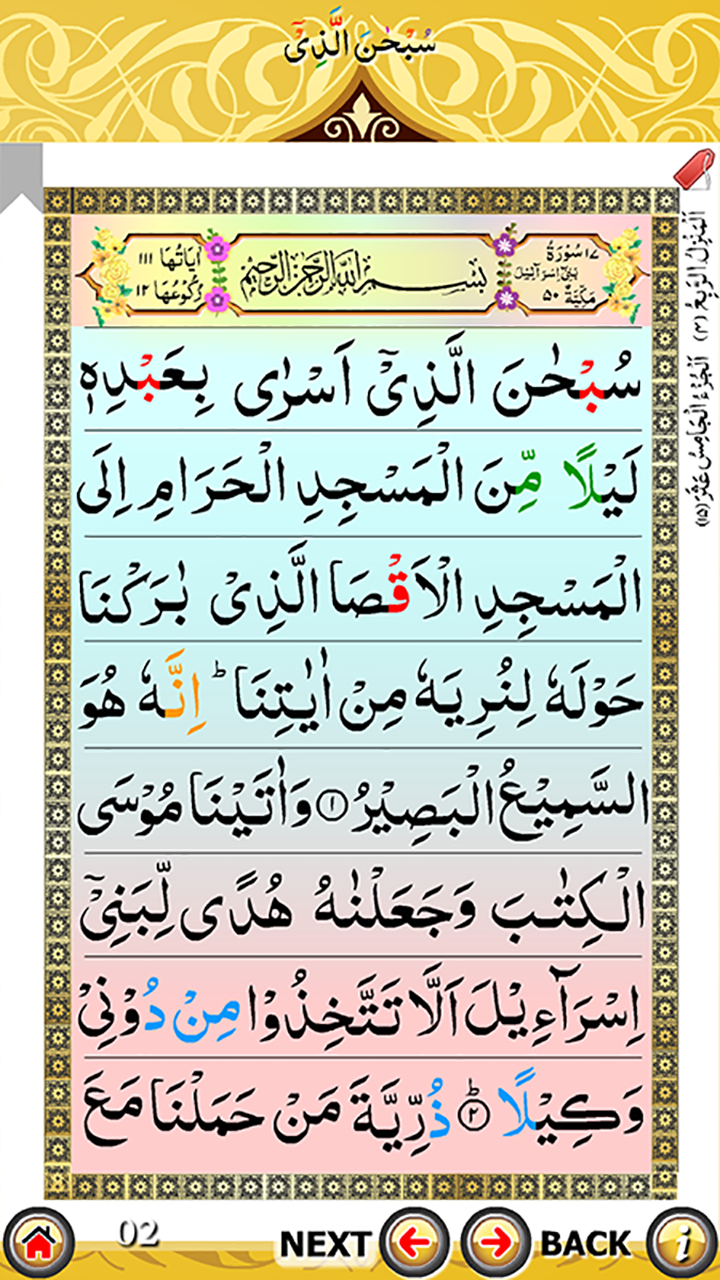 سُبْحٰنَ الَّذِیْۤ
اٰیَاتُهَا ١١١
رُكُوْعُهَا ١٢
بِسْمِ اللّٰهِ الرَّحْمٰنِ الرَّحِیْمِ
١٧ سُوْرَةُ
بَنِیْۤ اِسْرَآئِیْلَ
مَكِّیَّةٌ ٥٠
سُبْحٰنَ الَّذِیْۤ اَسْرٰی بِعَبْدِهٖ
لَیْلًا مِّنَ الْمَسْجِدِ الْحَرَامِ اِلَی
الْمَسْجِدِ الْاَقْصَا الَّذِیْ بٰرَكْنَا
حَوْلَهٗ لِنُرِیَهٗ مِنْ اٰیٰتِنَا ؕ اِنَّهٗ هُوَ
السَّمِیْعُ الْبَصِیْرُ ١ وَاٰتَیْنَا مُوْسَی
الْكِتٰبَ وَجَعَلْنٰهُ هُدًی لِّبَنِیْۤ
اِسْرَآءِیْلَ اَلَّا تَتَّخِذُوْا مِنْ دُوْنِیْ
وَكِیْلًا ٢ؕ ذُرِّیَّةَ مَنْ حَمَلْنَا مَعَ
اَلْمَنْزِلُ الرَّابِعُ (٤)
اَلْجُزْءُ الْخَامِسُ عَشَرَ (١٥)
02
NEXT
BACK
i